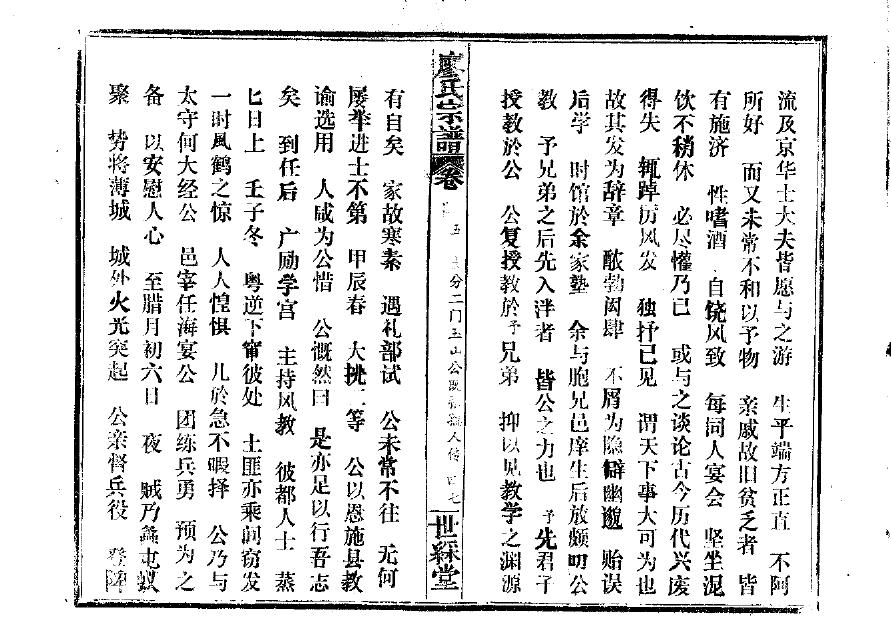 流及京华士大夫皆愿与之游 生平端方正直 不阿
所好 而又未常不和以予物 亲戚故旧贫乏者 皆
有施济 性嗜酒 自饶风致 每同人宴会 坚坐泥
饮不稍休 必尽懽乃已 或与之谈论古今历代兴废
得失 辄踔厉风发 独抒己见 谓天下事大可为也
故其发为辞章 酣勃闳肆 不屑为隐僻幽邈 贻误
后学 时馆於余家塾 余与胞兄邑庠生后放颇叨公
教 予兄弟之后先入泮者 皆公之力也 予先君子
授教於公 公复授教於予兄弟 抑以见教学之渊源
廖氏宗谱 卷 五 分二门玉山公暨孺人传 四七 世綵堂
有自矣 家故寒素 遇礼部试 公未常不往 无何
屡举进士不第 甲辰春 大挑二等 公以恩施县教
谕选用 人咸为公惜 公慨然曰 是亦足以行吾志
矣 到任后 广励学宫 主持风教 彼都人士 蒸
匕日上 壬子冬 粤逆下窜彼处 土匪亦乘间窃发
一时风鹤之惊 人人惶惧 几於急不暇择 公乃与
太守何大经公 邑宰任海宴公 团练兵勇 预为之
备 以安慰人心 至腊月初六日 夜 贼乃蠭屯蚁
聚 势将薄城 城外火光突起 公亲督兵役 登陴